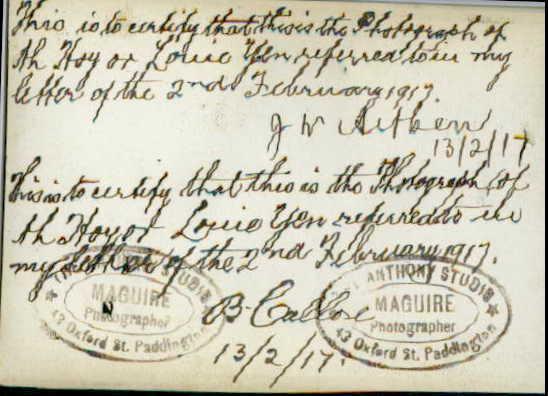 This is to certify that this is the Photograph of
Ah Hoy or Louie Yen referred to in my
letter of the 2nd February 1917.
J W Aitken
13/2/17
This is to certify that this is the Photograph of
Ah Hoy or Louie Yen referred to in
my letter of the 2nd February 1917.
ANTHONY STUDIO
MAGUIRE
Photographer
43 Oxford St. Paddington
B.
13/2/17.
ANTHONY STUDIO
MAGUIRE
Photographer
43 Oxford St. Paddington